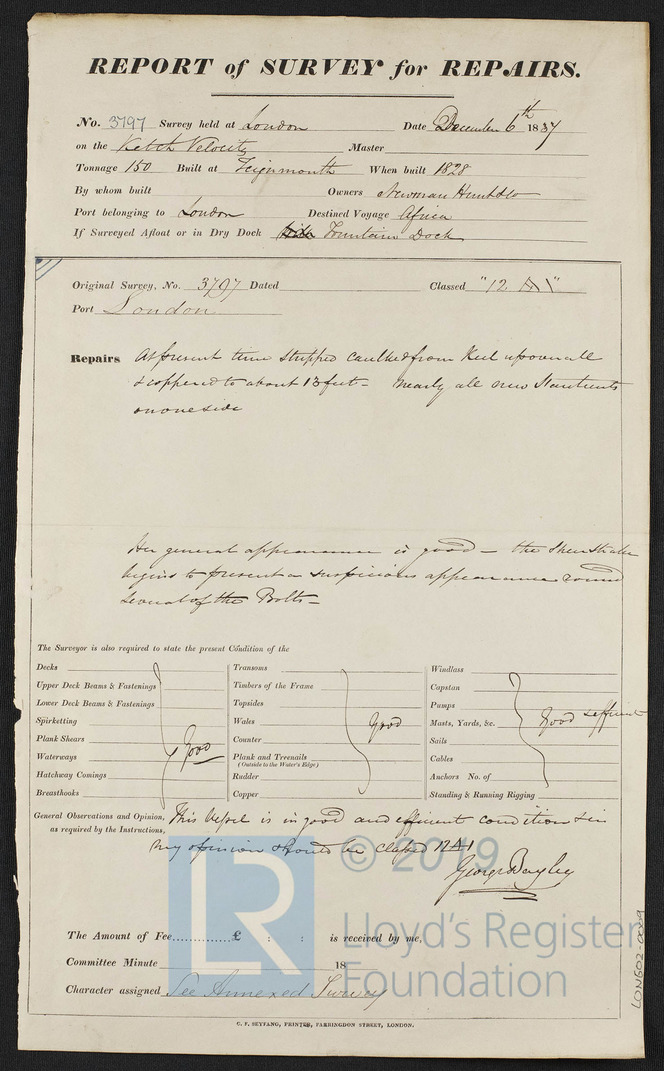 REPORT of SURVEY for REPAIRS.
No. 3797 Survey held at London Date December 6th 1837
on the Ketch Velocity Master
Tonnage 150 Built at Teignmouth When built 1828
By whom built Owners Newman Hunt & Co
Port belonging to London Destined Voyage Africa
If Surveyed Afloat or in Dry Dock Fountain Dock
Original Survey, No. 3797 Dated Classed "12 A1"
Port London
Repairs At present time stripped caulked from Keel upon all
& coppered to about 13 feet - nearly all new
on one side
Her general appearance is good - the Sheerstrake
begins to present a suspicious appearance round
several of the Bolts -
The Surveyor is also required to state the present Condition of the
Decks
Upper Deck Beams & Fastenings
Lower Deck Beams & Fastenings
Spirketting
Plank Shears
Waterways
Hatchway Comings
Breasthooks
Good
Transoms
Timbers of the Frame
Topsides
Wales
Counter
Plank and Treenails
(Outside to the Water's Edge)
Rudder
Copper
Good
Windlass
Capstan
Pumps
Masts, Yards, &c.
Sails
Cables
Anchors No. of
Standing & Running Rigging
Good & efficient
General Observations and Opinion, This Vessel is in good and efficient condition & in
as required by the Instructions, my opinion should be Classed 12 A1
George Bayley
The Amount of Fee..............£ : : is received by me,
Committee Minute 18
Character assigned See Annexed Survey
C. F. SEYFANG, PRINTER, FARRINGDON STREET, LONDON.
© 2019
LR
Lloyd's Register
Foundation
LON602-0049